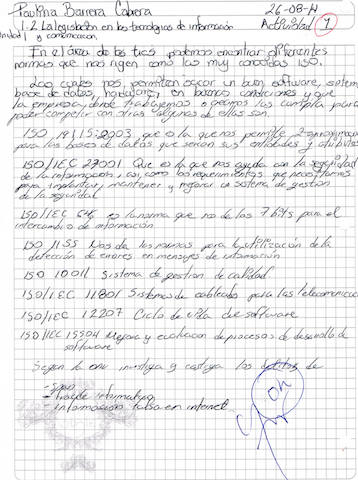 Paulina Barrera Cabrera 26-08-14
1.2 La legislación en las tecnologías de información Actividad 1
Unidad 1 y comunicación
En el área de las tics podemos encontrar diferentes
normas que nos rigen como las muy conocidas ISO.
Las cuales nos permiten un buen software, sistema
base de datos, en buenas condiciones y que
la empresa donde trabajemos las cumpla para
poder competir con otras algunas de ellas son.
ISO 19115:2003 que es la que nos permite
para las bases de datos que serían sus entidades y atributos
ISO/IEC 27001 Que es la que nos ayuda con la seguridad
de la información, así como los requerimientos que necesitamos
para implantar, mantener y mejorar un sistema de gestión
de la seguridad.
ISO/IEC 646 es la norma que nos da los 7 bits para el
intercambio de información
ISO 1155 Nos da las normas para la utilización de la
detección de errores en mensajes de información
ISO 10011 Sistema de gestión de calidad
ISO/IEC 11801 Sistemas de cableado para las telecomunicaciones
ISO/IEC 12207 Ciclo de vida del software
ISO/IEC 15504 Mejora y evaluación de procesos de desarrollo de
software
Según la onu investiga y castiga los delitos de
- Spam
- Fraude informático
- información falsa en internet